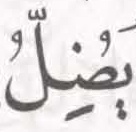 يُضِلُّ